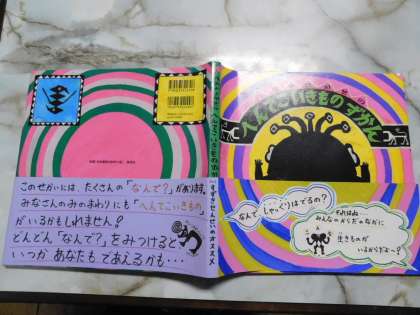 このせかいには、たくさんの「なんで？」があります。
みなさんのみのまわりにも「へんてこいきもの」
がいるかもしれません？
どんどん「なんで？」をみつけると
いつか あなたも であえるかも・・・
へんてこいきものずかん
すずきせんせいのオススメ
へんてこいきものずかん
なんで しゃっくりはでるの？
それはね…
みんなのからだのなかに
生きものが
いるからだよ〜？